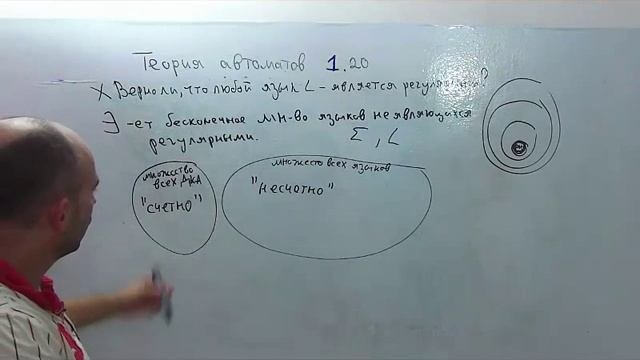 Теория автоматов 1.20
X Верно ли, что любой язык L - является регулярным?
∃ -ет бесконечное мн-во языков не являющихся
регулярными. Σ, L
множество
всех ДКА
"счетно"
множесто всех языков
"несчетно"